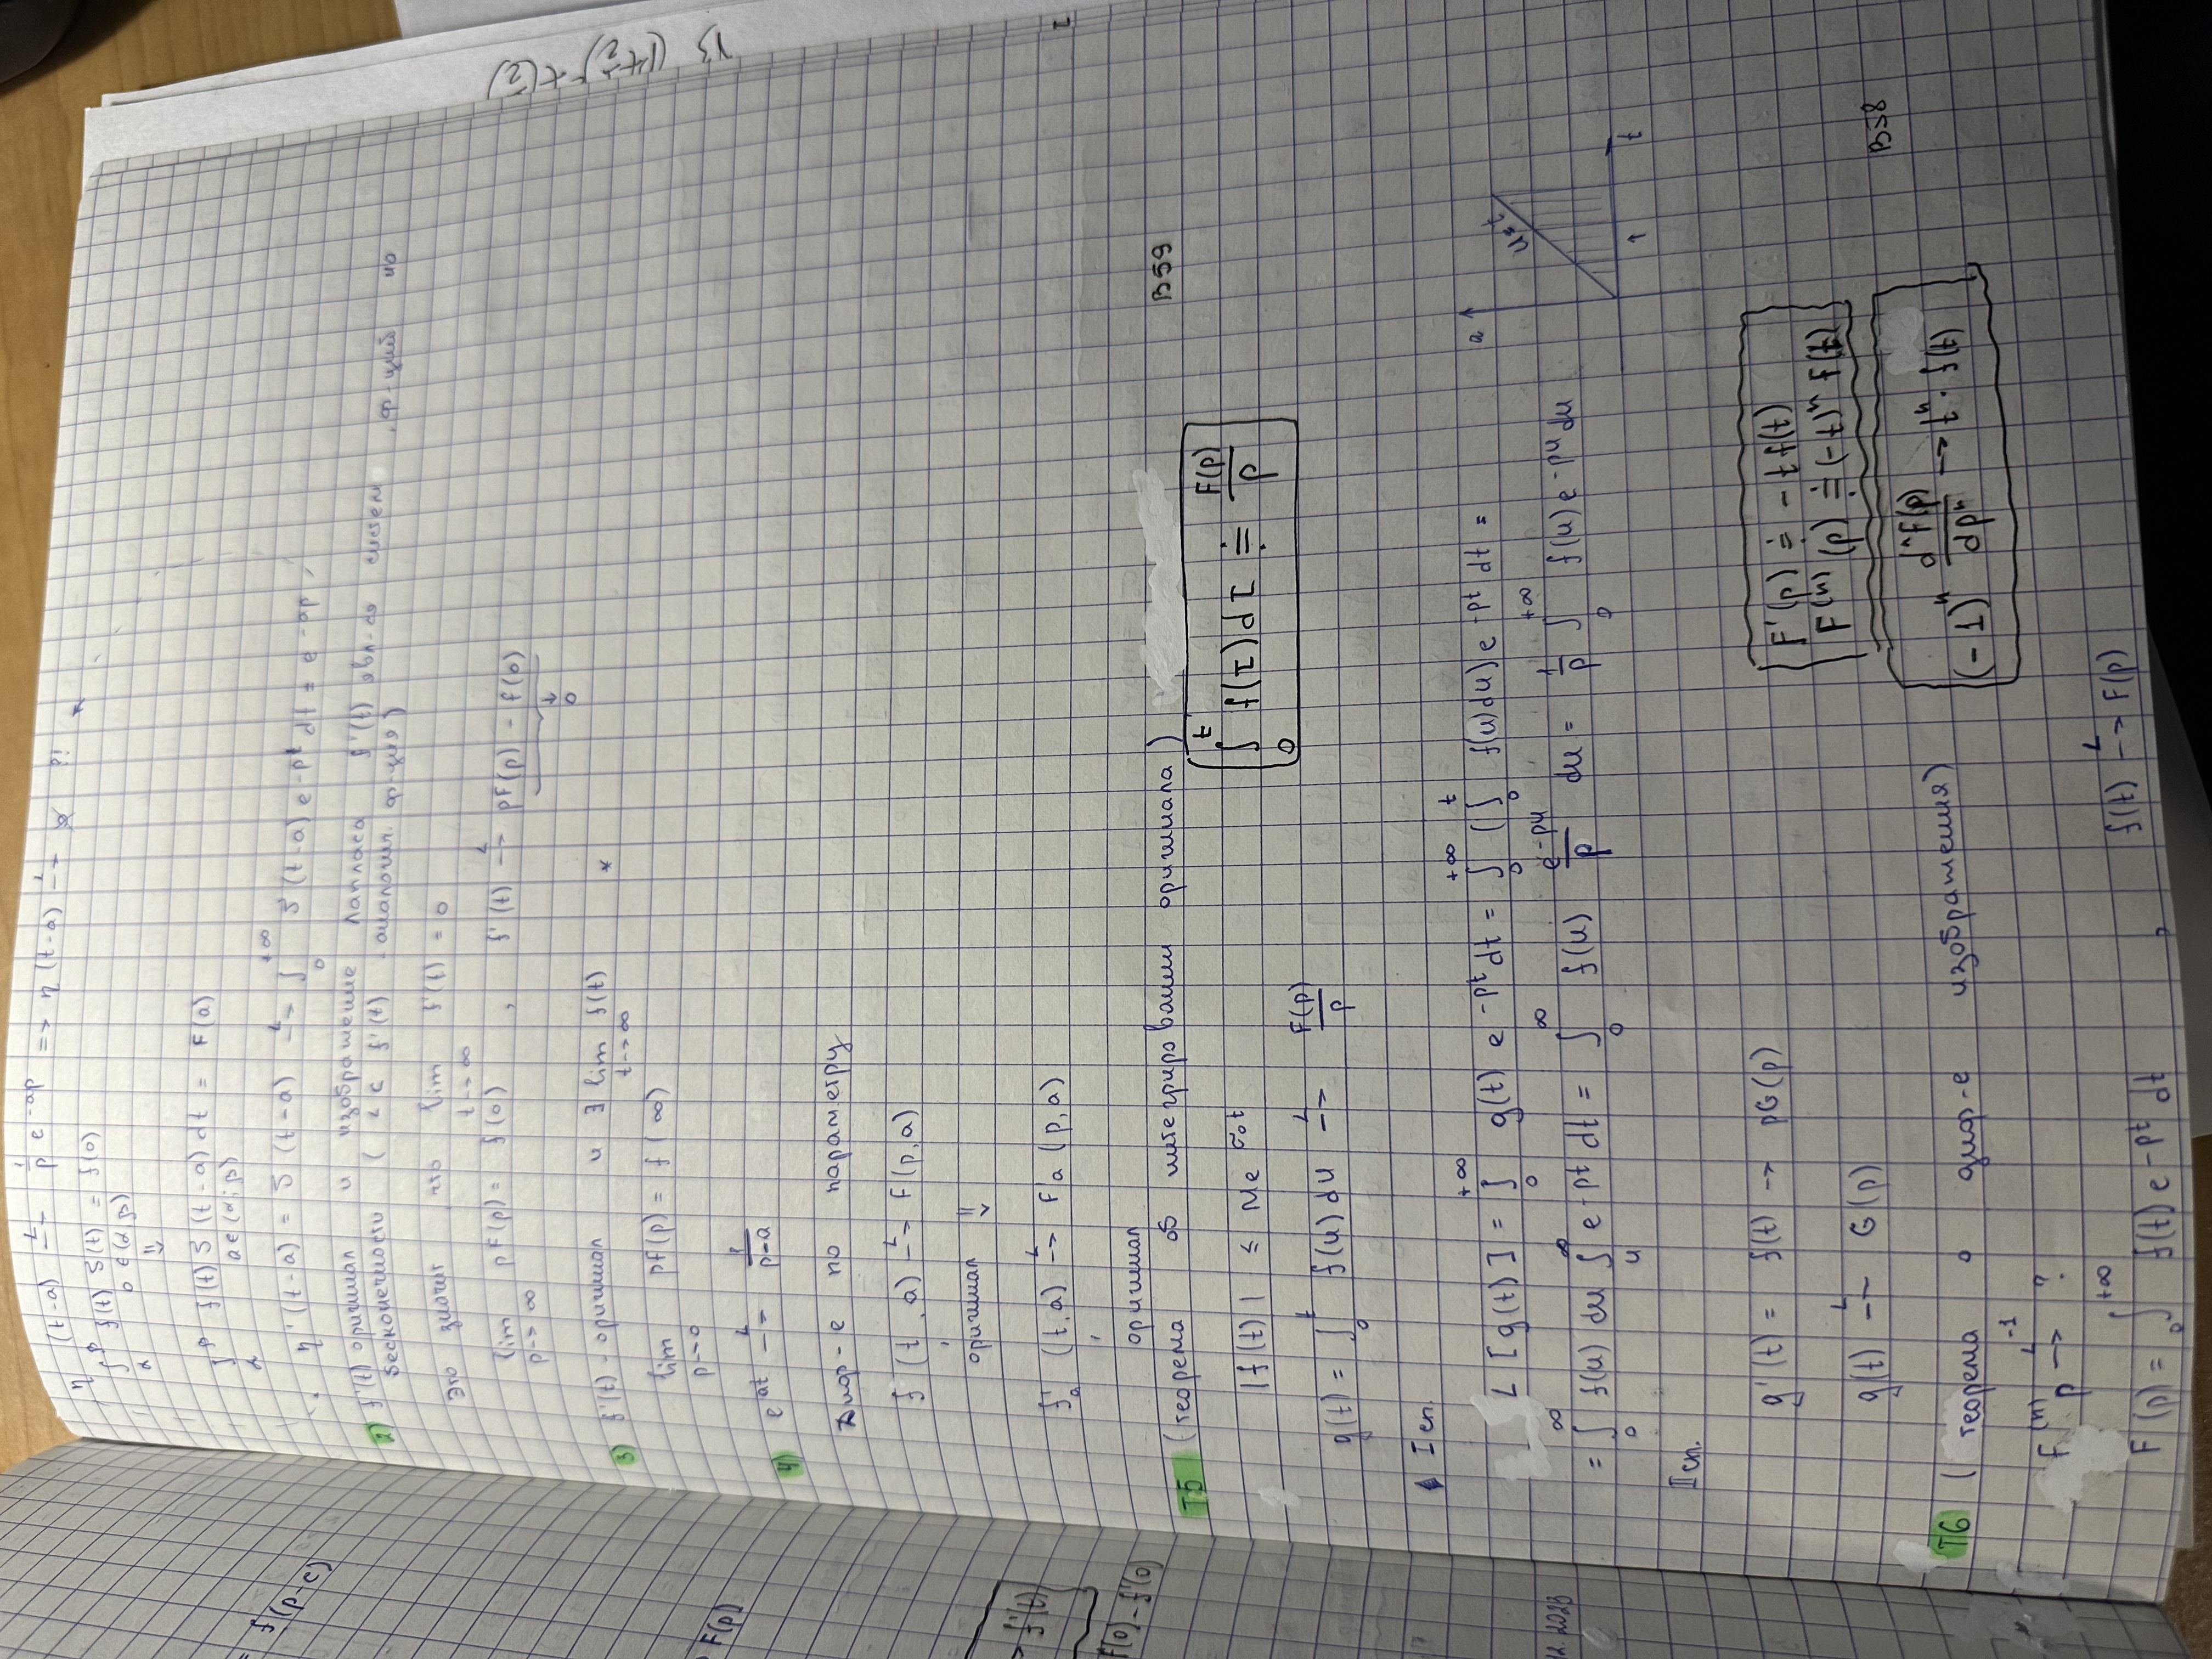 η (t-a) →L 1/p e^-ap => η (t-a) →L ?!
∫_α^β f(t) δ(t) = f(0)
0 ∈ (α, β)
⇓
∫_α^β f(t) δ(t-a) dt = F(a)
a ∈ (α; β)
η'(t-a) = δ(t-a) →L ∫_0^+∞ δ(t-a) e^-pt dt = e^-ap
2) f'(t) оригинал и изображение Лапласа f'(t) явл-ся ф-цией на
бесконечности ( f'(t) - аналогич. ф-ция)
Это значит, что lim f'(t) = 0
t → ∞
lim pF(p) = f(0) , f'(t) →L pF(p) - f(0)
p → ∞
↓
0
3) f'(t) - оригинал и ∃ lim f(t) *
t → ∞
lim pf(p) = f(∞)
p → 0
4) e^at →L 1/(p-a)
Диф-е по параметру
f (t, a) →L F(p, a)
оригинал ⇓
f'_a (t, a) →L F'a (p, a)
оригинал
Т5 (теорема об интегрировании оригинала) В59
|f(t)| ≤ Me^σ₀t
∫_0^t f(τ) dτ ≓ F(p)/p
g(t) = ∫_0^t f(u) du →L F(p)/p
I сп.
L [g(t)] = ∫_0^+∞ g(t) e^-pt dt = ∫_0^+∞ (∫_0^t f(u) du) e^-pt dt =
= ∫_0^∞ f(u) du ∫_u^∞ e^-pt dt = ∫_0^∞ f(u) e^-pu/p du = 1/p ∫_0^+∞ f(u) e^-pu du
u = t
t
II сп.
g'(t) = f(t) → pG(p)
g(t) →L G(p)
F'(p) ≓ - t f(t)
F^(n) (p) ≓ (-t)^n f(t)
В58
(-1)^n d^n F(p)/dp^n → t^n · f(t)
Т6 (теорема о диф-е изображения)
F^(n) p →L^-1 ?
F(p) = ∫_0^+∞ f(t) e^-pt dt , f(t) →L F(p)
= f(p-c)
F(p)
→ f'(t)
f(0) - f'(0)
12.2023